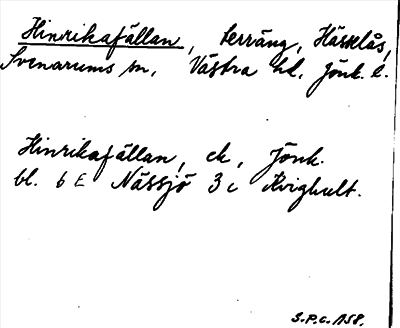 Hinrikafällan, terräng, Hässelås,
Svenarums sn, Västra hd, Jönk. l.
Hinrikafällan, ek, Jönk.
bl. 6 E Nässjö 3 c Kvighult.
S.P.C. 158.